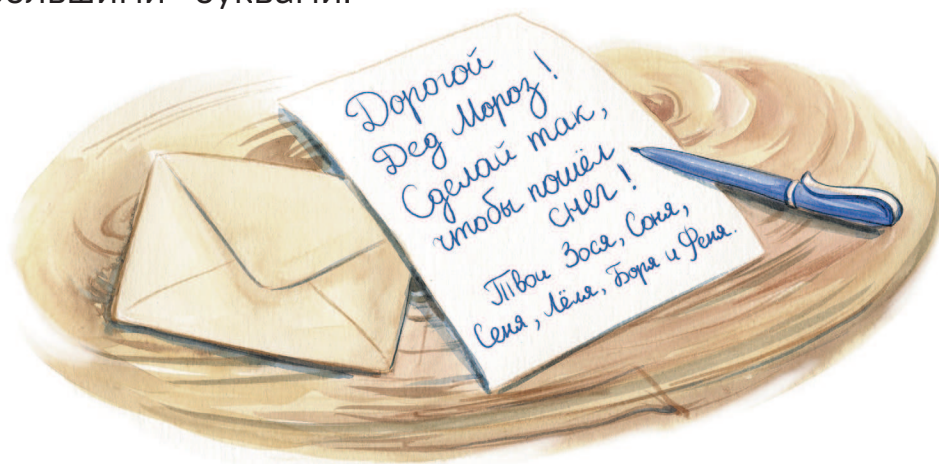 большими буквами.
Дорогой
Дед Мороз!
Сделай так,
чтобы пошёл
снег!
Твои Зося, Соня,
Сеня, Лёля, Боря и Феня.